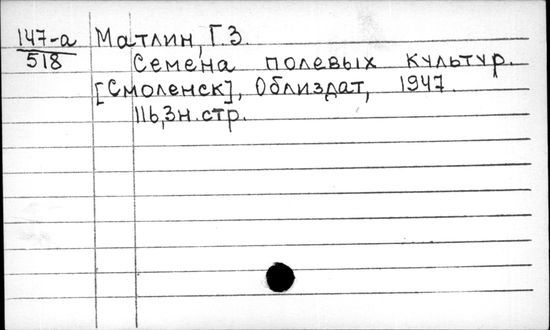 147-а Матлин, Г.З.
518 Семена полевых культур.
[Смоленск], Облиздат, 1947.
116, 3 н. стр.